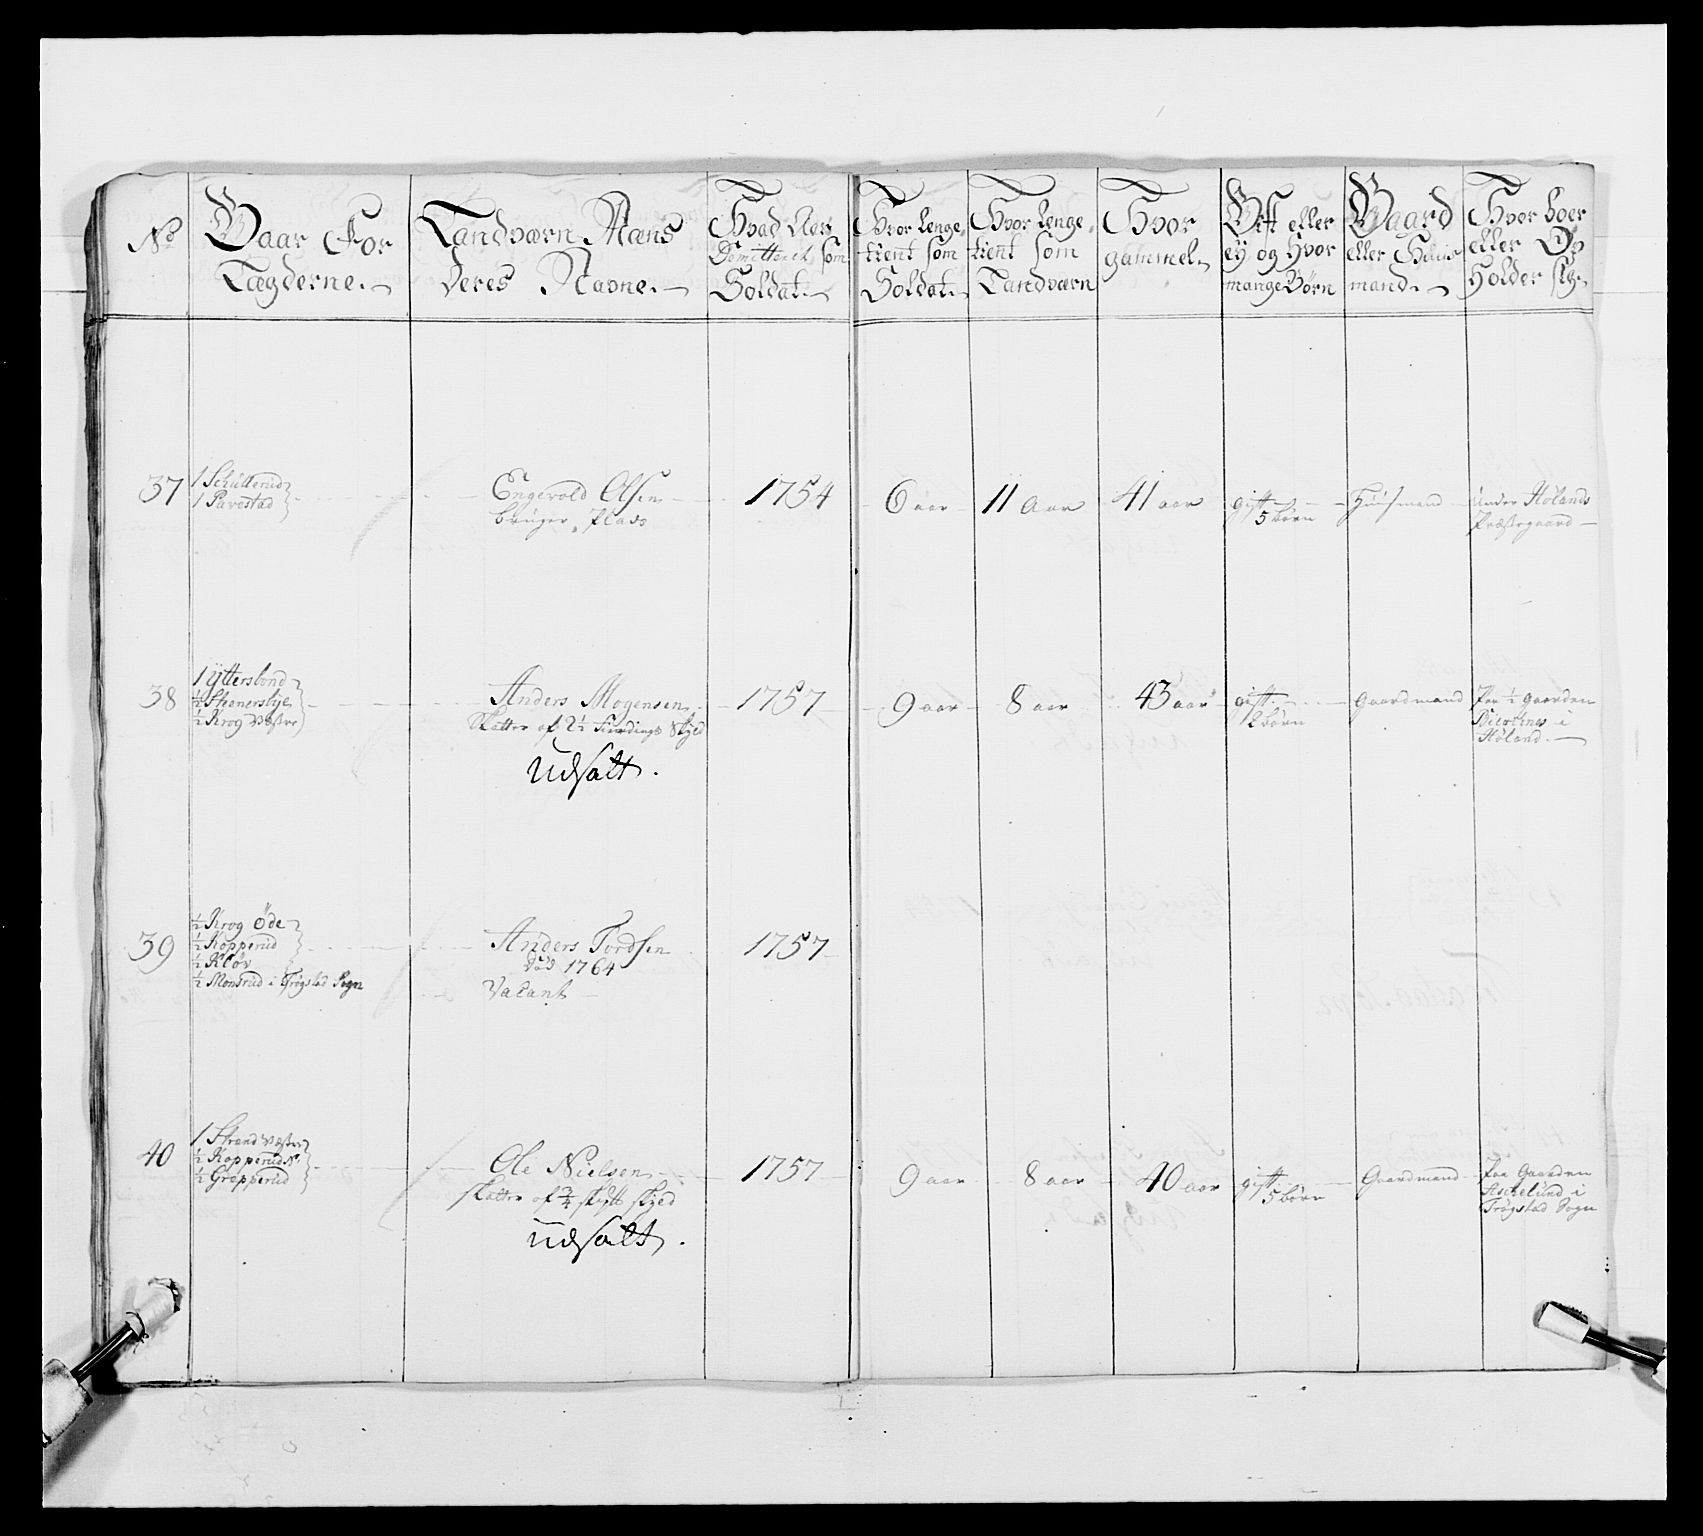 No
Gaar For
Lægderne.
Landværn Mæns
deres Navne.
Hvad Aar
Demitteret som
Soldat.
Hvor lenge
tient som
Soldat.
Hvor lenge
tient som
Landværn
Hvor
gammel.
Gift eller
ey og hvor
mange Børn
Gaard
eller Huus
mand.
Hvor boer
eller Op
holder sig.
37
1 Schullerud
1 Parestad
Engevold Olsen
bruger Plads
1754
6 aar
11 Aar
41 aar
gift
5 børn
Huusmand
under Hølands
Præstegaard
38
1 Yttersbond
½ Skenersbye
½ Krog Vestre
Anders Mogensen
Skatter af 2½ Fierdings Skyld
Udsatt.
1757
9 aar
8 aar
43 aar
gift
2 børn
Gaardmand
Paa ½ gaarden
i
Høland.
39
½ Krog Øde
½ Kopperud
½ Kløv
½ Monsrud i Trøgstad Sogn
Anders Tordsen
død 1764
Vacant
1757
40
1 Strand Vestre
½ Kopperud N.
½ Grepperud
Ole Nielsen
skatter af ¾ skytt skyld
udsatt.
1757
9 aar
8 aar
40 aar
gift
5 børn
Gaardmand
Paa Gaarden
Aschelund i
Trøgstad Sogn